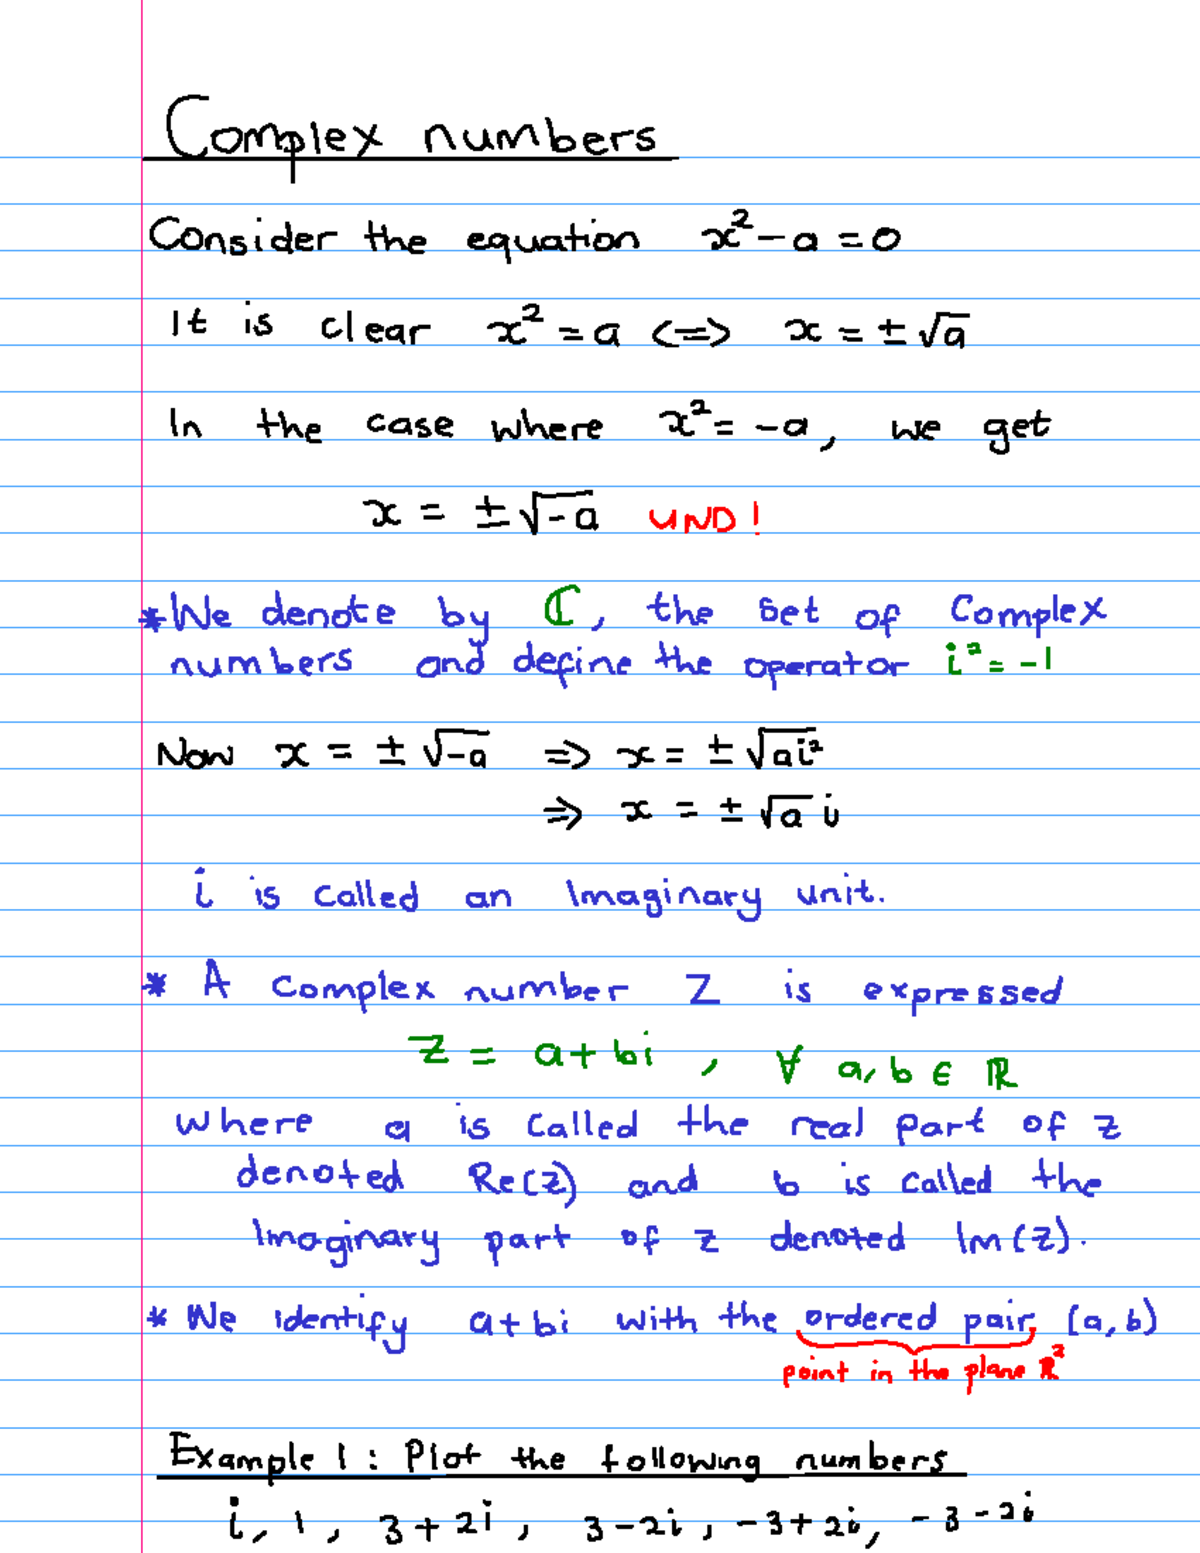 Complex numbers
Consider the equation x² - a = 0
It is clear x² = a <=> x = ± √a
In the case where x² = -a, we get
x = ± √-a UND!
* We denote by ℂ, the set of Complex
numbers and define the operator i² = -1
Now x = ± √-a => x = ± √ai²
=> x = ± √a i
i is called an Imaginary unit.
* A Complex number Z is expressed
Z = a + bi , ∀ a, b ∈ ℝ
where a is called the real part of z
denoted Re(z) and b is called the
Imaginary part of z denoted Im(z).
* We identify a + bi with the ordered pair (a, b)
point in the plane ℝ²
Example 1 : Plot the following numbers
i, 1, 3 + 2i, 3 - 2i, -3 + 2i, -3 - 2i